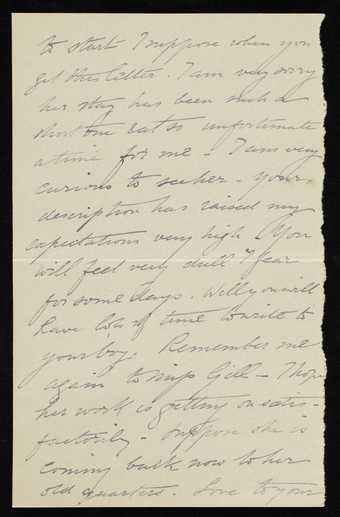 to start I suppose when you
get this letter. I am very sorry
her stay has been such a
short one & at so unfortunate
a time for me - I am very
curious to see her - your
description has raised my
expectations very high. You
will feel very dull I fear
for some days. Well you will
have lots of time to write to
your boy. Remember me
again to Miss Gill - I hope
her work is getting on satis-
factorily - Suppose she is
coming back now to her
old quarters. Love to your